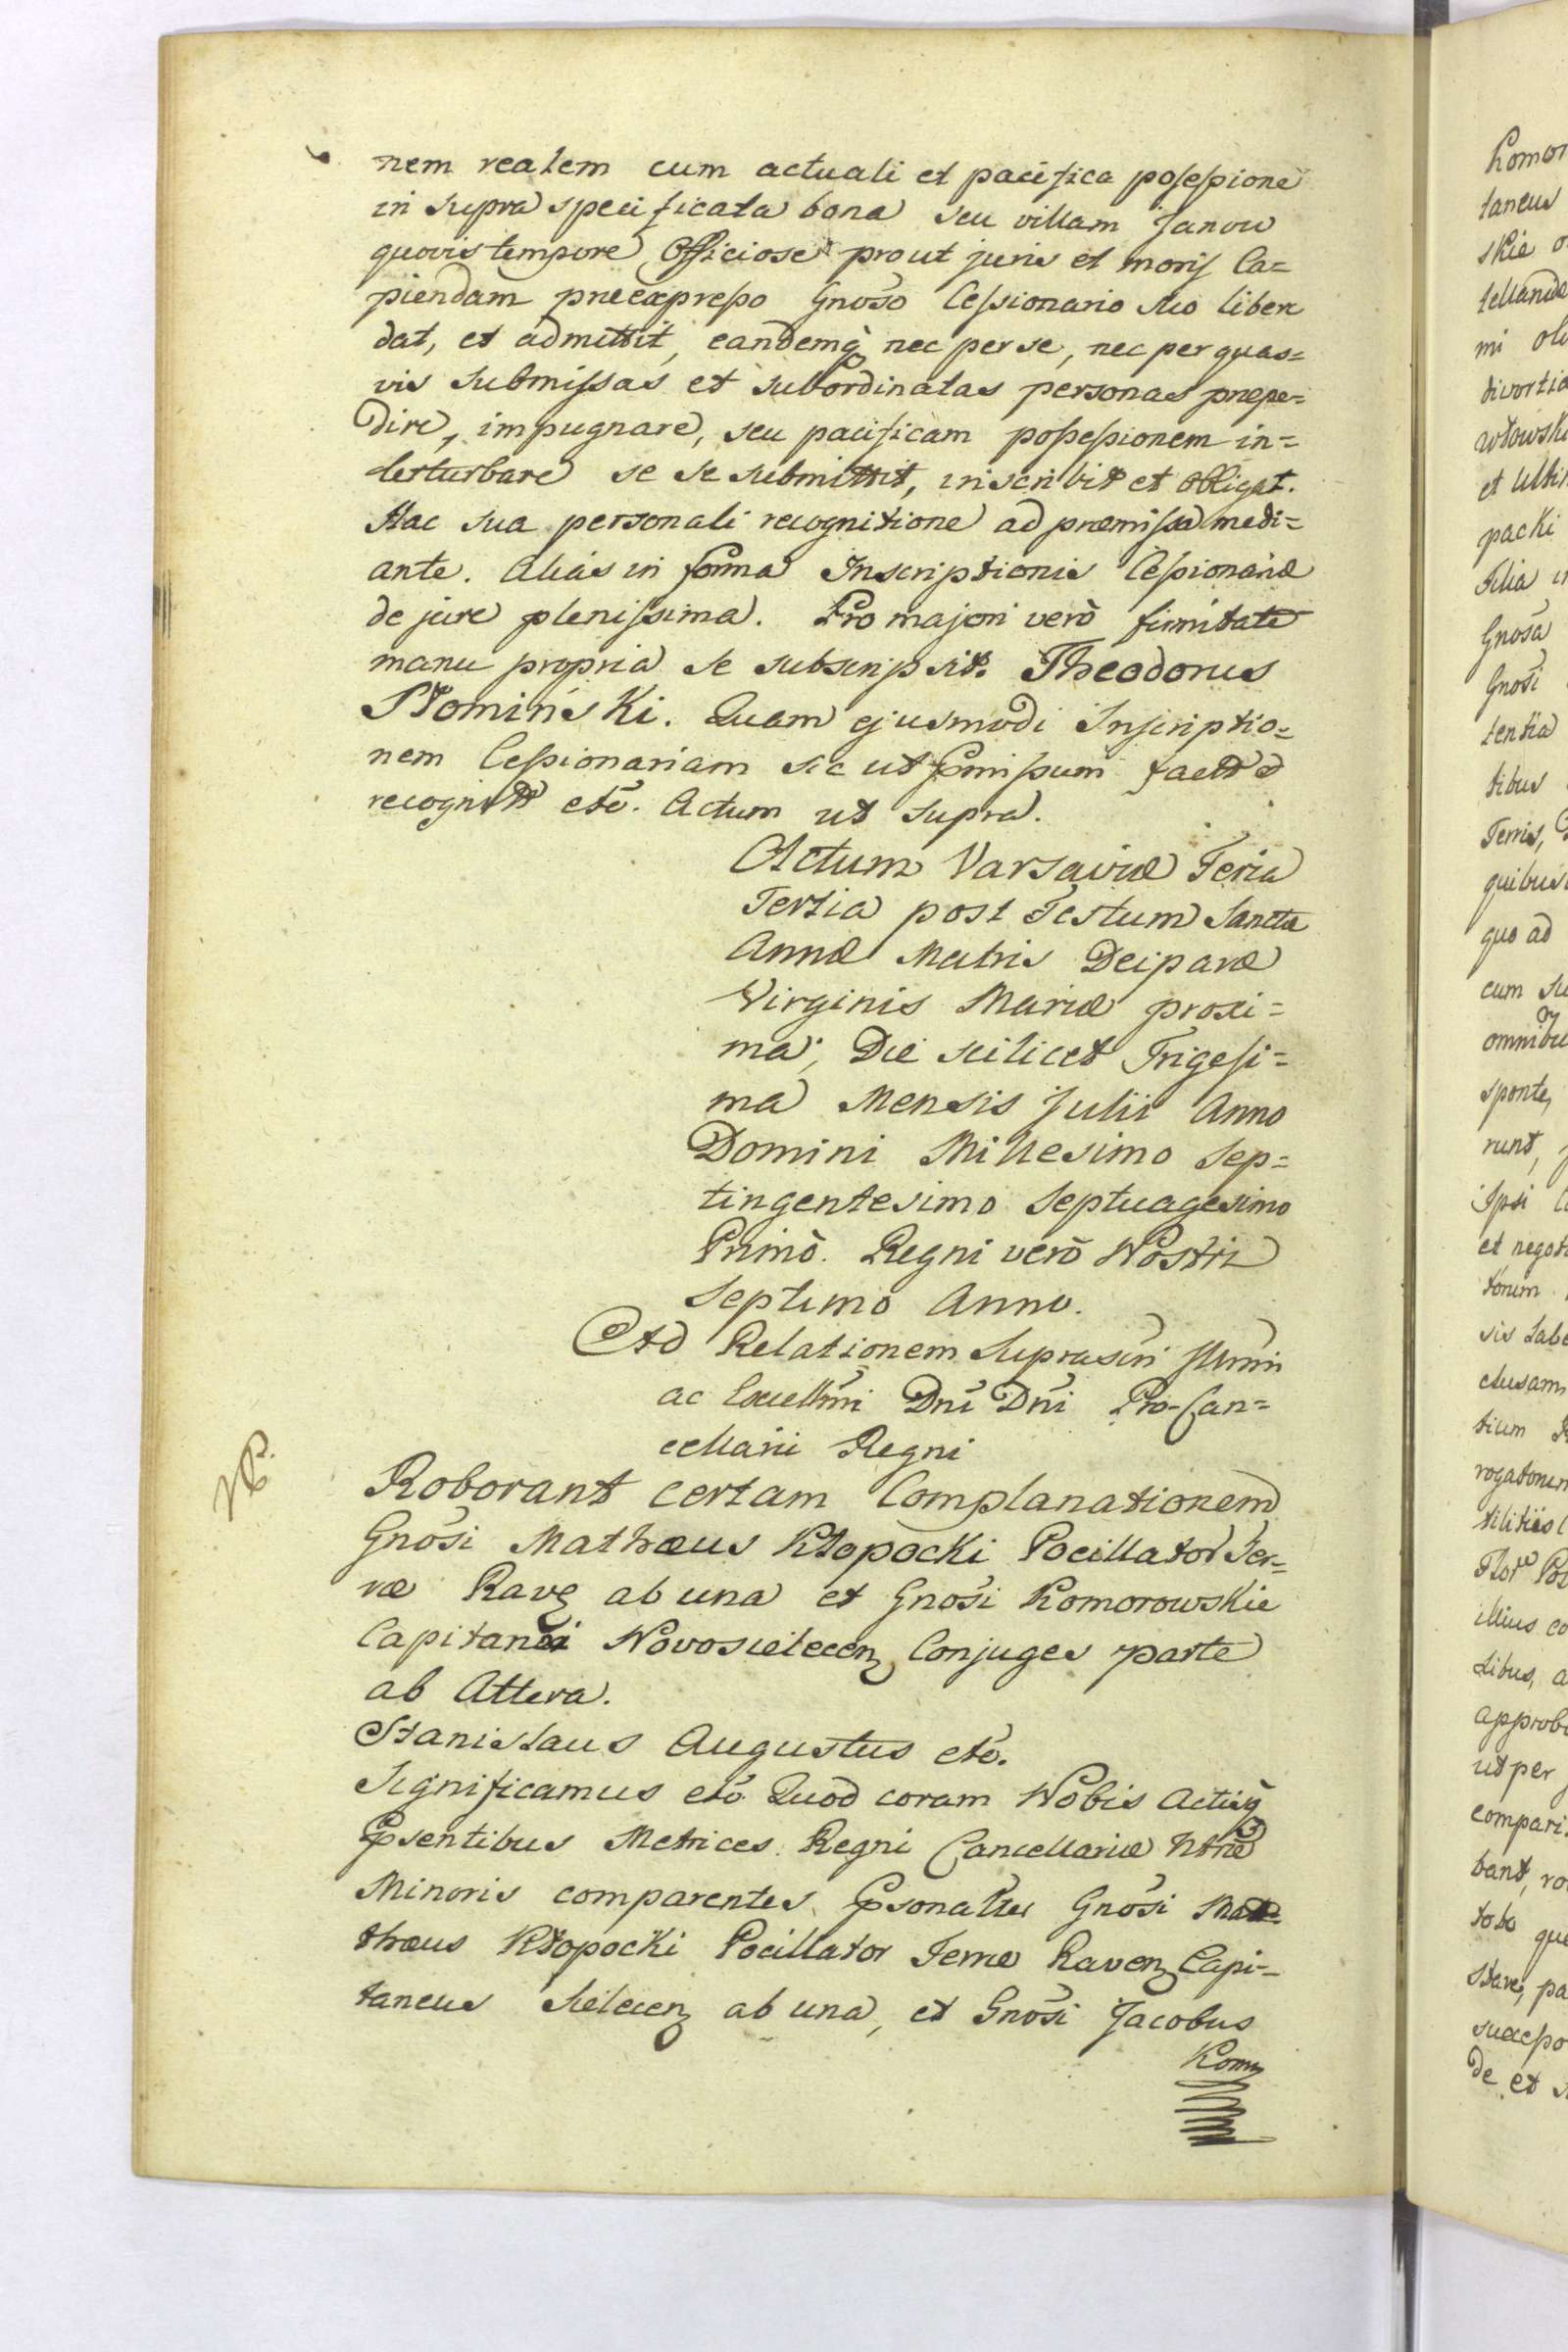 nem realem cum actuali et pacifica posessione
in supra specificata bona seu villam Janow
quovis tempore Officiose prout juris et moris Ca=
piendam præexpresso Gnoso Cessionario suo libere
dat, et admittit, eandemq nec per se, nec per quas=
vis submissas et subordinatas personas præpe=
dire, impugnare, seu pacificam possessionem in=
terturbare se se submittit, inscribit et obligat.
Hac sua personali recognitione ad præmissa medi=
ante. Alias in forma Inscriptionis Cessionariæ
de jure plenissima. Pro majori verò firmitate
manu propria se subscripsit. Theodorus
Płominski. Quam ejusmodi Inscriptio=
nem Cessionariam sic ut pmissum factæ
recognit etc. Actum ut supra.
Actum Varsaviæ Feria
Tertia post Festum Sanctæ
Annæ Matris Deiparæ
Virginis Mariæ proxi=
ma, Die scilicet Trigesi=
ma Mensis Julii Anno
Domini Millesimo Sep=
tingentesimo Septuagesimo
Primò. Regni verò Nostri
Septimo Anno.
Ad Relationem Suprascri Illmi
ac Excellmi Dni Dni Pro-Can=
cellarii Regni
Roborant certam Complanationem
Gnosi Mathæus Kłopocki Pocillator Ter=
ræ Rav ab una et Gnosi Komorowskie
Capitanei Novosielecen Conjuges parte
ab Altera.
Stanislaus Augustus etc.
Significamus etc Quod coram Nobis Actisq
Psentibus Metrices Regni Cancellariæ Ntræ
Minoris comparentes Psonaliter Gnosi Mat=
thæus Kłopocki Pocillator Terræ Raven Capi=
taneus Sielecen ab una, et Gnosi Jacobus
Kom
Komor
taneus
skie
tellande
mi
divortia
włowski
packi
Filia
Gnosa
Gnosi
tentia
tibus
Terris,
quo ad
cum
sponte,
runt,
Ipsi
et negot
torum
clusam
illius co
approb
ut per
compari
bant,
toto que
de et